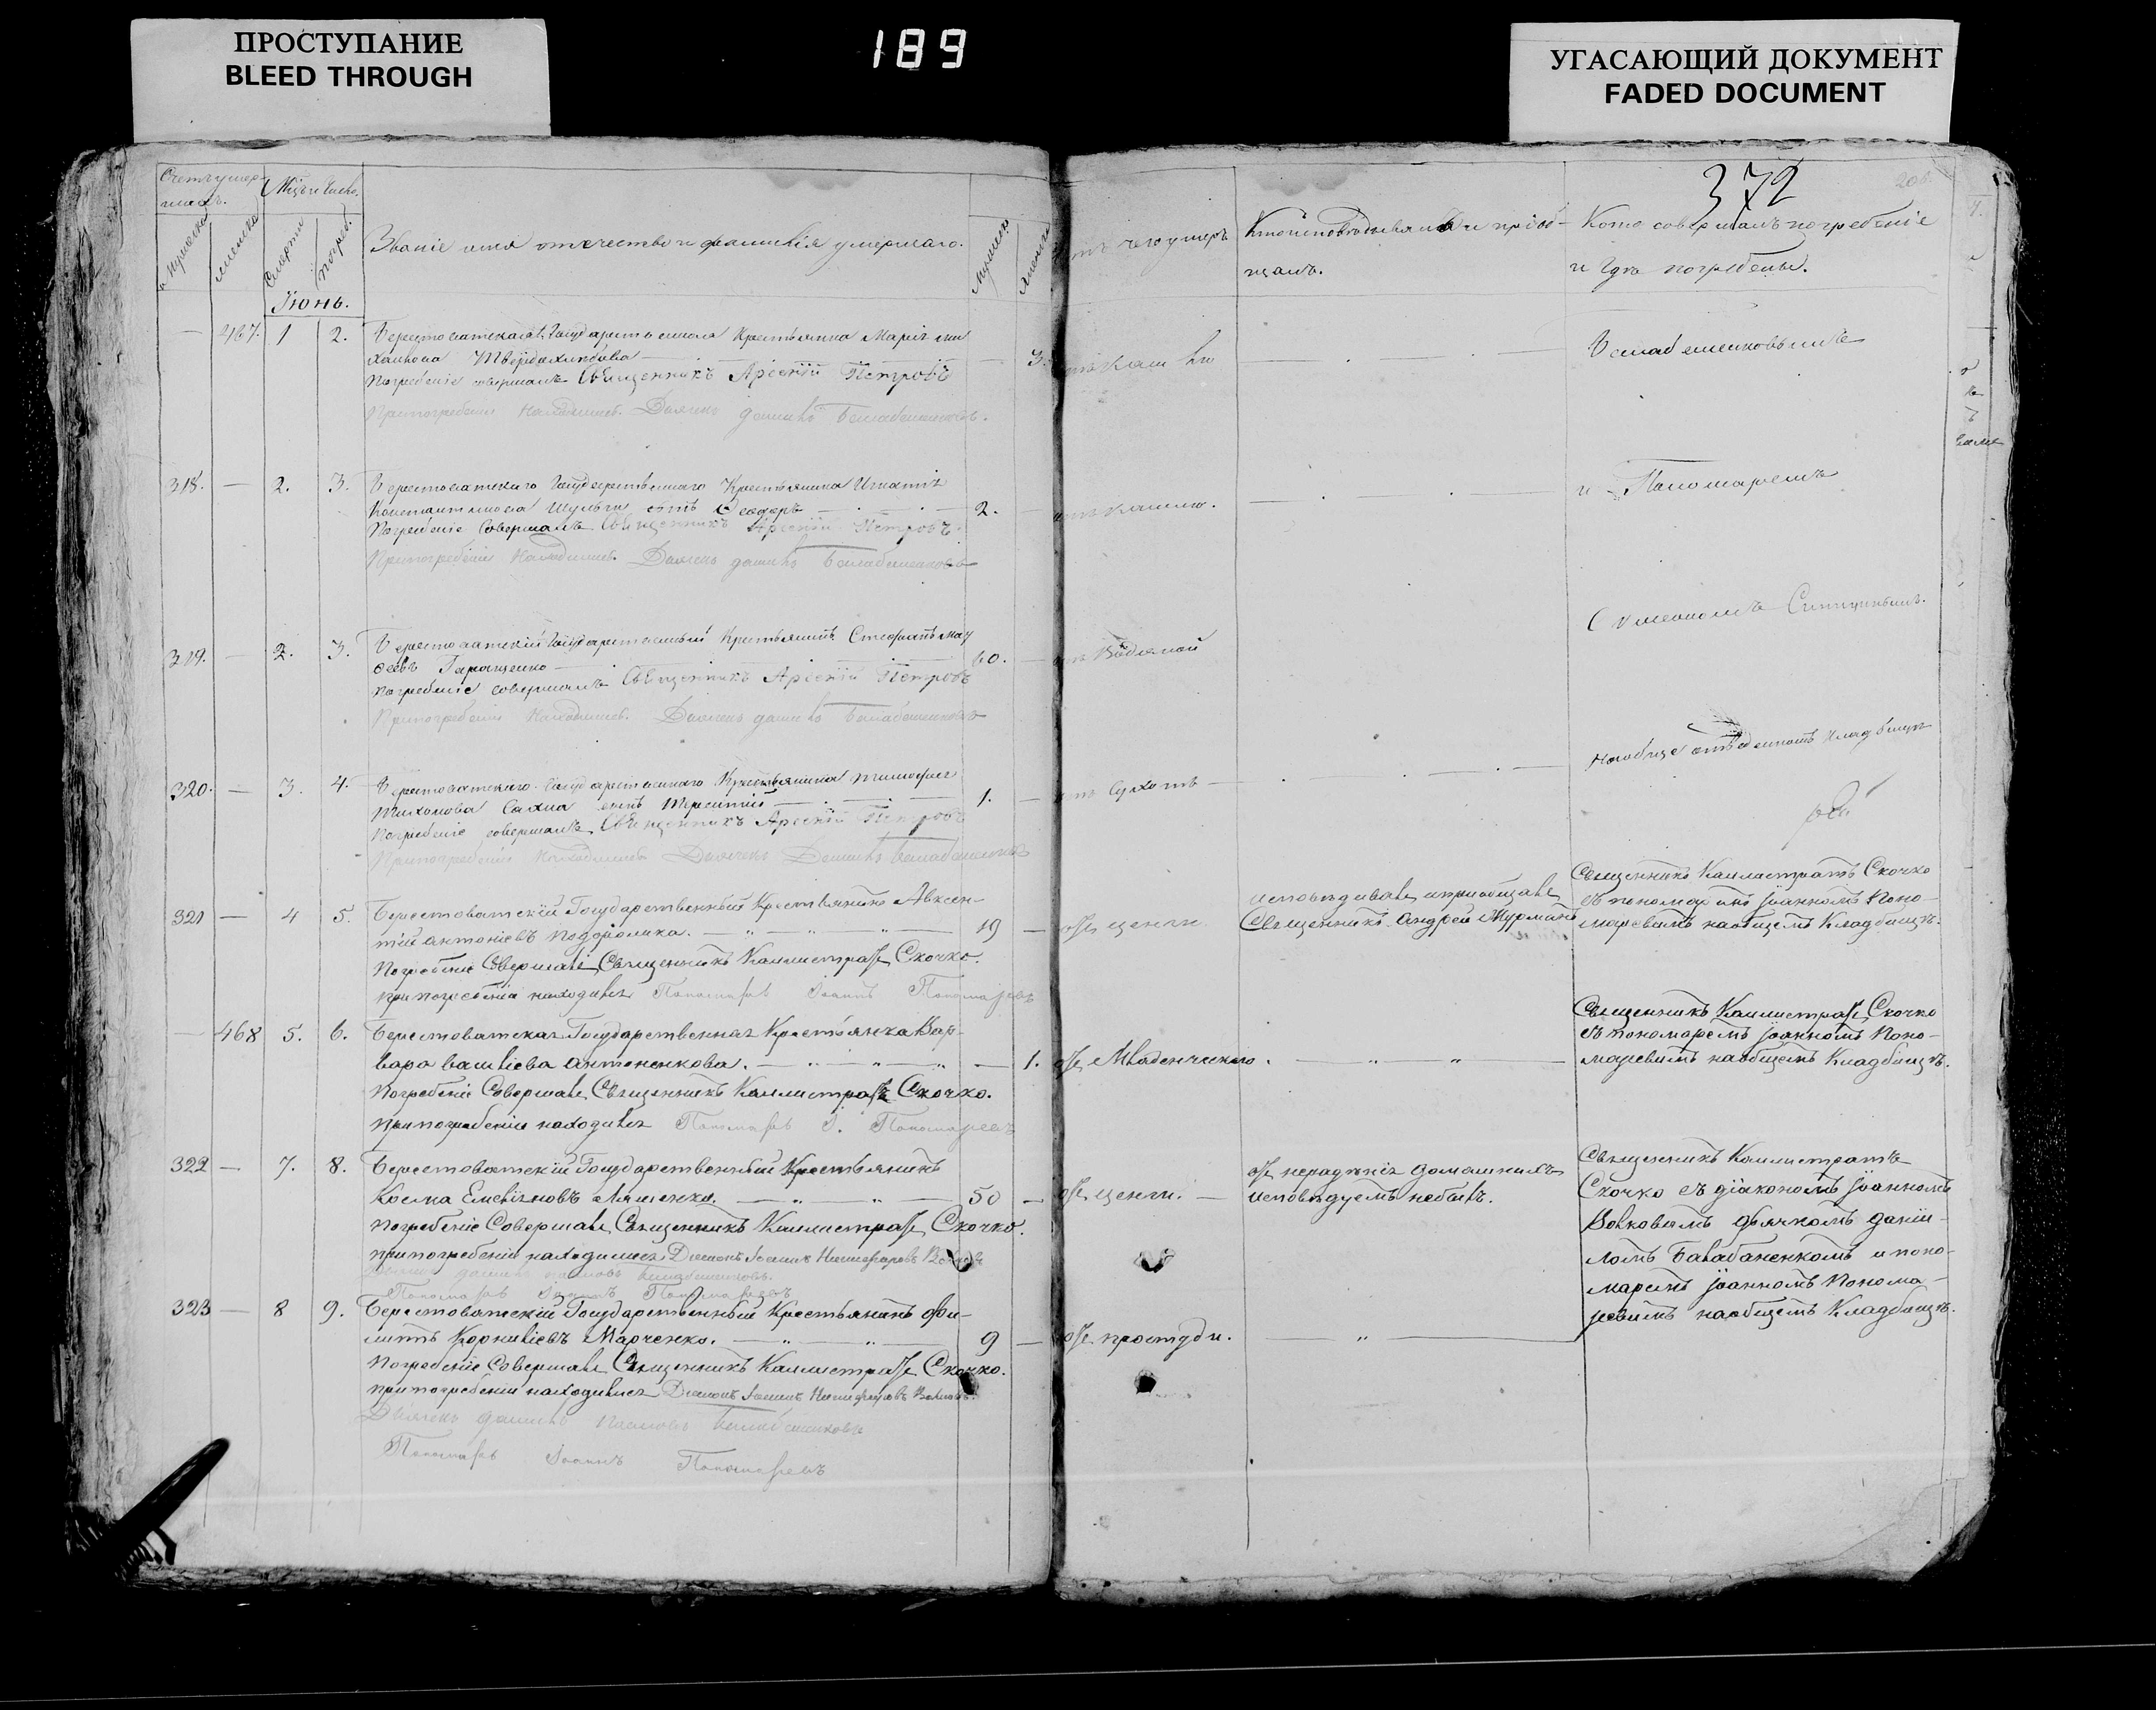 ПРОСТУПАНИЕ
BLEED THROUGH
189
УГАСАЮЩИЙ ДОКУМЕНТ
FADED DOCUMENT
372
Счетъ умер-
шихъ.
Мѣсяцъ и число.
Мужеска
женска
Смерти
погреб.
Званіе имя отчество и фамилія умершаго.
Мужеск
женск
отъ чего умеръ
Кто исповѣдывалъ и пріоб-
щалъ.
Кто совершалъ погребеніе
и гдѣ погребены.
Іюнь.
467. 1 2. Берестоватская Государственная Крестьянка Марія Ми
хайлова 3.
Погребеніе совершалъ Священникъ Арсеній Петровъ
При погребеніи находился Дьячекъ Даніилъ Балабаненковъ.
318. — 2. 3. Берестоватскаго Государственнаго Крестьянина Игнатія
Константинова Шульги сынъ Ѳеодоръ 2. отъ кашлю.
Погребеніе совершалъ Священникъ Арсеній Петровъ.
При погребеніи находился Дьячекъ Даніилъ Балабаненковъ
и Пономаремъ
319. — 2. 3. Берестоватскій Государственный Крестьянинъ Стефанъ
Геращенко 60. — отъ водяной
погребеніе совершалъ Священникъ Арсеній Петровъ
При погребеніи находился Дьячекъ Даніилъ Балабаненковъ
Симеономъ
320. — 3. 4. Берестоватскаго Государственнаго Крестьянина Тимофея
Тихонова сынъ Терентій 1. — отъ сухотъ
Погребеніе совершалъ Священникъ Арсеній Петровъ
При погребеніи находился Дьячекъ Даніилъ Балабаненковъ
на общемъ кладбищѣ
321 — 4 5. Берестоватскій Государственный Крестьянинъ Авксен-
тій Антоніевъ 19 — отъ цынги
Погребеніе Совершалъ Священникъ Каллистратъ Скочко.
при погребеніи находился Пономарь Іоаннъ Пономаревъ
исповѣдивалъ и пріобщалъ
Священникъ Андрей
Священникъ Каллистратъ Скочко
съ пономаремъ Іоанномъ Поно-
маревымъ на общемъ Кладбищѣ.
— 468 5. 6. Берестоватская Государственная Крестьянка Вар-
вара Антоненкова. — 1. отъ Младенческаго.
Погребеніе Совершалъ Священникъ Каллистратъ Скочко.
при погребеніи находился Пономарь І. Пономаревъ
Священникъ Каллистратъ Скочко
съ пономаремъ Іоанномъ Поно-
маревымъ на общемъ Кладбищѣ.
322 — 7. 8. Берестоватскій Государственный Крестьянинъ
Косма Емеліяновъ Ляшенко. 50 — отъ цынги.
погребеніе Совершалъ Священникъ Каллистратъ Скочко.
при погребеніи находились Діаконъ Іоаннъ Волковъ
Дьячекъ Даніилъ Балабаненковъ.
Пономарь Іоаннъ Пономаревъ
отъ нерадѣнія домашнихъ
исповѣдуемъ небылъ.
Священникъ Каллистратъ
Скочко съ діакономъ Іоанномъ
Волковымъ дьячкомъ Дании-
ломъ Балабаненкомъ и поно-
маремъ Іоанномъ Понома-
ревымъ на общемъ Кладбищѣ.
323 — 8 9. Берестоватскій Государственный Крестьянинъ Фи-
липъ Корниліевъ Марченко. 9 — отъ простуди.
погребеніе Совершалъ Священникъ Каллистратъ Скочко.
при погребеніи находились Діаконъ Іоаннъ Волковъ.
Дьячекъ Даніилъ Балабаненковъ
Пономарь Іоаннъ Пономаревъ